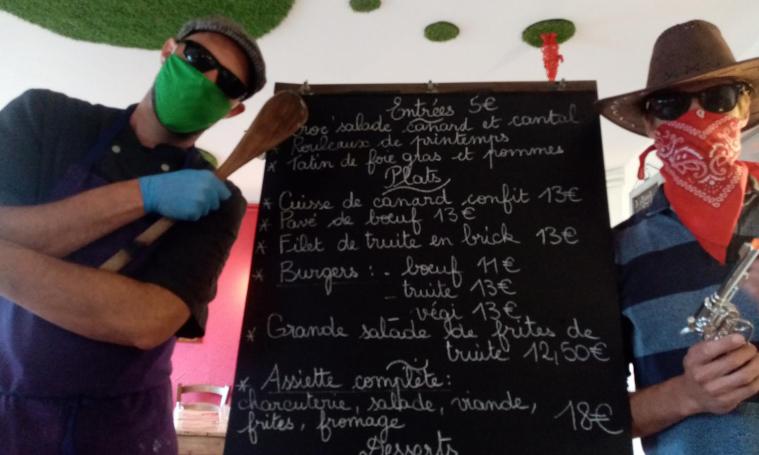 Entrées 5€
Croc' salade canard et cantal
Rouleaux de printemps
* Tatin de foie gras et pommes
Plats
* Cuisse de canard confit 13€
* Pavé de bœuf 13€
* Filet de truite en brick 13€
* Burgers : - bœuf 11€
- truite 13€
- végi 13€
* Grande salade de frites de
truite 12,50€
* Assiette complète :
charcuterie, salade, viande,
frites, fromage 18€
Desserts